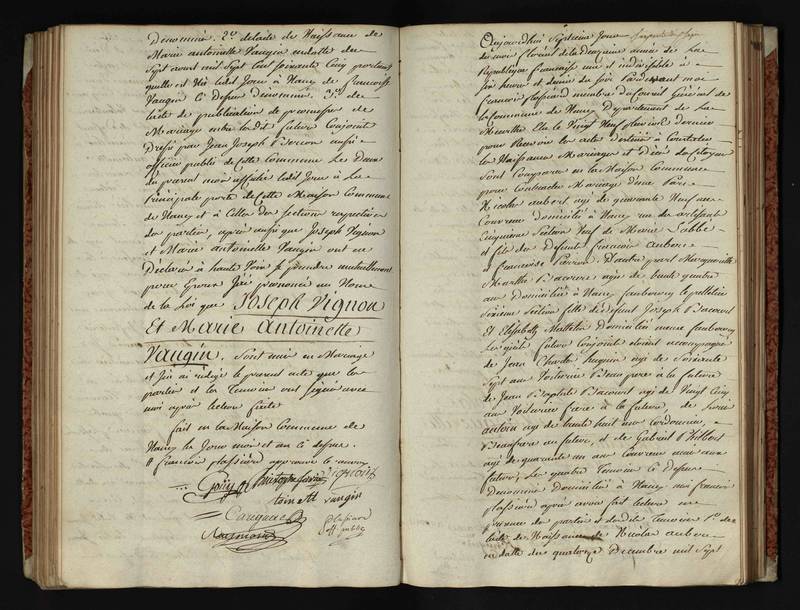 Dénommé. 2.º de lacte de Naissance de
Marie antoinette Vaugin en datte du
Sept aout mil Sept Cent soixante Cinq portant
quelle est Née ledit Jour à Nancy de francois
Vaugin Ci Dessus denommé. 3.º de
lacte de publication de promesses de
Mariage entre les dits futurs Conjoints
Dressé par Jean Joseph
officier public de Cette Commune Les Deux
du présent mois affiché ledit Jour à La
principale porte de Cette Maison Commune
de Nancy et à Celles des Sections respectives
des parties, après aussi que Joseph Vignon
et Marie Antoinette Vaugin ont eu
Déclaré à haute Voix se prendre mutuellement
pour Epoux J'ai prononcé au Nom
de la Loi que Joseph Vignon
Et Marie Antoinette
Vaugin, Sont unis en Mariage
et J'ai rédigé le présent acte que les
parties et les Temoins ont Signé avec
moi après lecture faite
fait en la Maison Commune de
Nancy les Jour mois et an Ci dessus.
françois plassiard approuvé
Vignon
toinette vaugin
plassiard
off. public
Aujourd'hui Septieme Jour
du mois floreal de la Deuxieme année de La
République francaise une et indivisible à
Six heures et demie du Soir Pardevant moi
francois plassiard membre du Conseil Général de
la Commune de Nancy Département de La
Meurthe Elu le Vingt Neuf pluviose dernier
pour Recevoir les actes destinés à Constater
les Naissances Mariages et Décès des Citoyens
Sont Comparus en la Maison Commune
pour Contracter Mariage d'une Part
Nicolas aubert agé de quarante Neuf ans
Couvreur domicilié à Nancy rue des artisans
Cinquieme Section Veuf de Marie Labbé
et fils des Defunts francois aubert
et francoise Perrin. D'autre part Marguerite
Marthe Bacourt agée de trente quatre
ans Domiciliée à Nancy faubourg le pelletier
Sixieme Section fille de Défunt Joseph Bacourt
Et Elisabeth Domiciliée meme faubourg
Lesquels futurs Conjoints étoient accompagnés
de Jean Charles agé de Soixante
Sept ans Voiturier Beau pere à la future
de Jean Baptiste Bacourt agé de Vingt Cinq
ans Voiturier frere à la future, de
antoine agé de trente huit ans Cordonnier,
Beaufrere au futur, et de Gabriel
agé de quarante un ans Couvreur ami aux
futurs; Les quatre Temoins Ci Dessus
Dénommés Domiciliés à Nancy moi francois
plassiard après avoir fait lecture en
présence des parties et desdits Temoins 1.º de
lacte de Naissance de Nicolas aubert
en datte du quatorze Decembre mil Sept